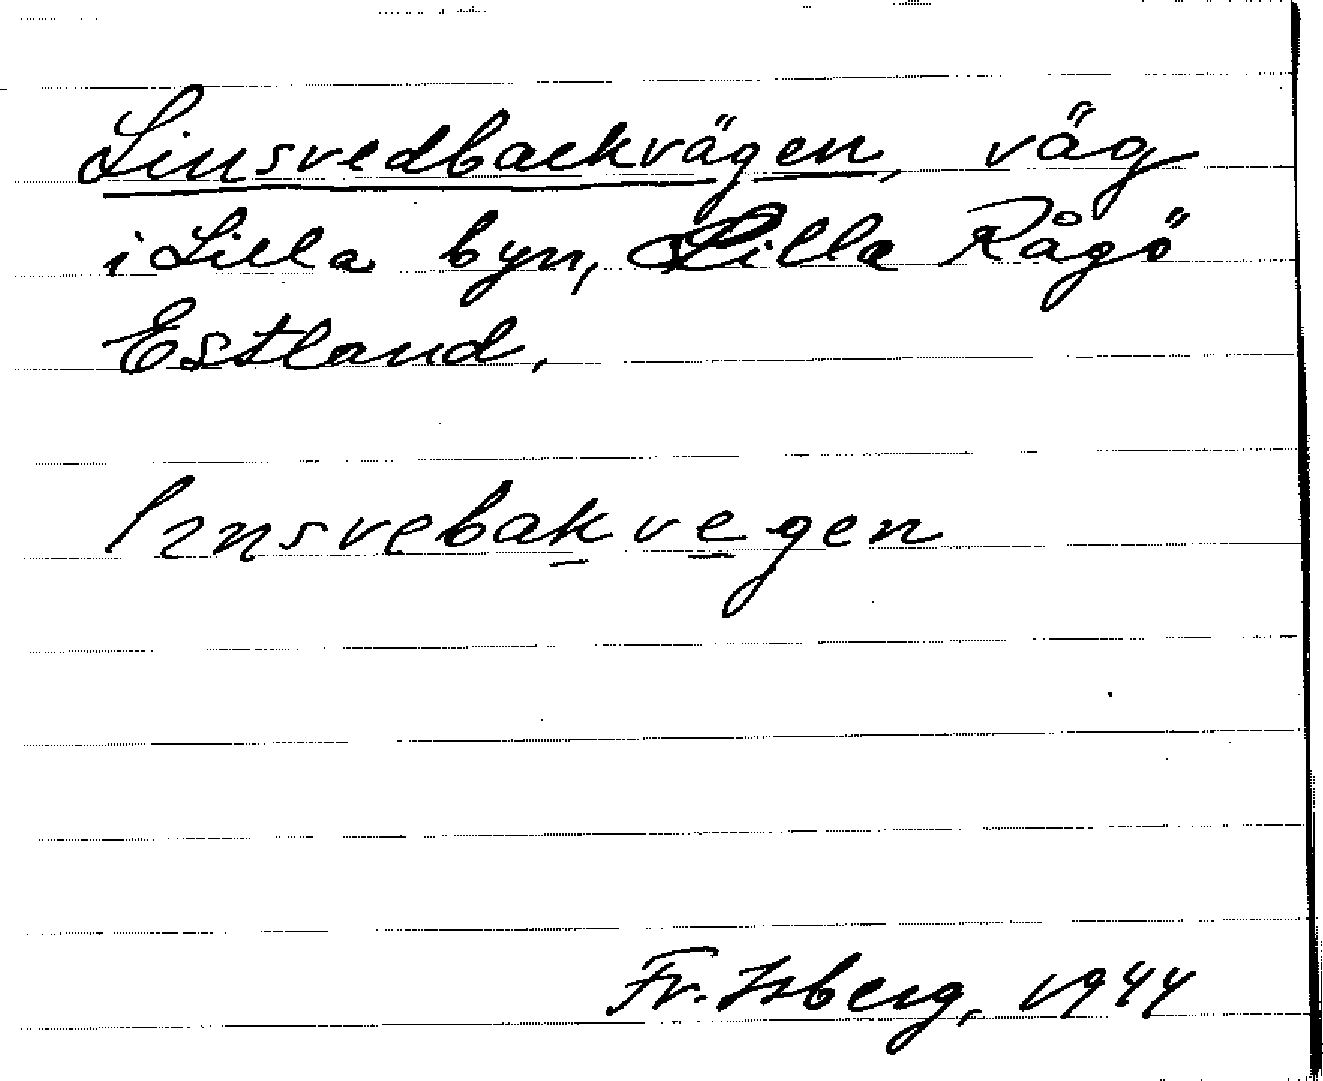 Linsvedbackvägen, väg
i Lilla byn, Lilla Rågö
Estland.
linsvebakvegen
Fr. Isberg, 1944